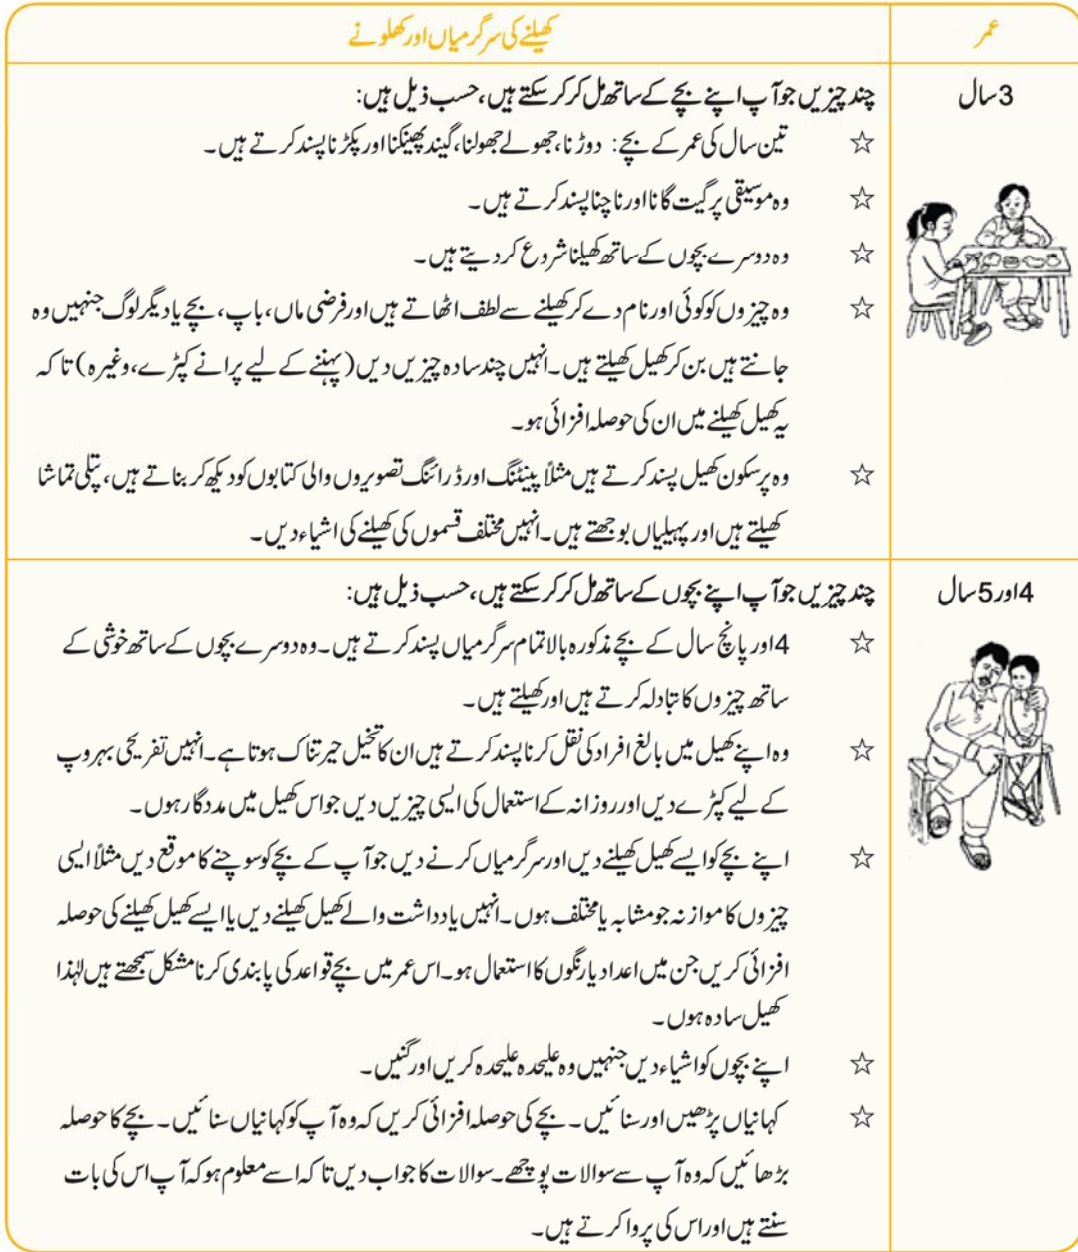 عمر
کھیلنے کی سرگرمیاں اور کھلونے
3 سال
چند چیزیں جو آپ اپنے بچے کے ساتھ مل کر کر سکتے ہیں، حسب ذیل ہیں:
☆ تین سال کی عمر کے بچے: دوڑنا، جھولے جھولنا، گیند پھینکنا اور پکڑنا پسند کرتے ہیں۔
☆ وہ موسیقی پر گیت گانا اور ناچنا پسند کرتے ہیں۔
☆ وہ دوسرے بچوں کے ساتھ کھیلنا شردع کر دیتے ہیں۔
☆ وہ چیزوں کو کوئی اور نام دے کر کھیلنے سے لطف اٹھاتے ہیں اور فرضی ماں، باپ، بچے یا دیگر لوگ جنہیں وہ
جانتے ہیں بن کر کھیل کھیلتے ہیں۔ انہیں چند سادہ چیزیں دیں (پہننے کے لیے پرانے کپڑے، وغیرہ) تا کہ
یہ کھیل کھیلنے میں ان کی حوصلہ افزائی ہو۔
☆ وہ پرسکون کھیل پسند کرتے ہیں مثلاً پینٹنگ اور ڈرائنگ تصویروں والی کتابوں کو دیکھ کر بناتے ہیں، پتلی تماشا
کھیلتے ہیں اور پہیلیاں بوجھتے ہیں۔ انہیں مختلف قسموں کی کھیلنے کی اشیاء دیں۔
4 اور 5 سال
چند چیزیں جو آپ اپنے بچوں کے ساتھ مل کر کر سکتے ہیں، حسب ذیل ہیں:
☆ 4 اور پانچ سال کے بچے مذکورہ بالا تمام سرگرمیاں پسند کرتے ہیں۔ وہ دوسرے بچوں کے ساتھ خوشی کے
ساتھ چیزوں کا تبادلہ کرتے ہیں اور کھیلتے ہیں۔
☆ وہ اپنے کھیل میں بالغ افراد کی نقل کرنا پسند کرتے ہیں ان کا تخیل حیرتناک ہوتا ہے۔ انہیں تفریحی بہروپ
کے لیے کپڑے دیں اور روزانہ کے استعمال کی ایسی چیزیں دیں جو اس کھیل میں مددگار ہوں۔
☆ اپنے بچے کو ایسے کھیل کھیلنے دیں اور سرگرمیاں کرنے دیں جو آپ کے بچے کو سوچنے کا موقع دیں مثلاً ایسی
چیزوں کا موازنہ جو مشابہ یا مختلف ہوں۔ انہیں یادداشت والے کھیل کھیلنے دیں یا ایسے کھیل کھیلنے کی حوصلہ
افزائی کریں جن میں اعداد یا رنگوں کا استعمال ہو۔ اس عمر میں بچے قواعد کی پابندی کرنا مشکل سمجھتے ہیں لہٰذا
کھیل سادہ ہوں۔
☆ اپنے بچوں کو اشیاء دیں جنہیں وہ علیحدہ علیحدہ کریں اور گنیں۔
☆ کہانیاں پڑھیں اور سنائیں۔ بچے کی حوصلہ افزائی کریں کہ وہ آپ کو کہانیاں سنائیں۔ بچے کا حوصلہ
بڑھائیں کہ وہ آپ سے سوالات پوچھے۔ سوالات کا جواب دیں تا کہ اسے معلوم ہو کہ آپ اس کی بات
سنتے ہیں اور اس کی پروا کرتے ہیں۔